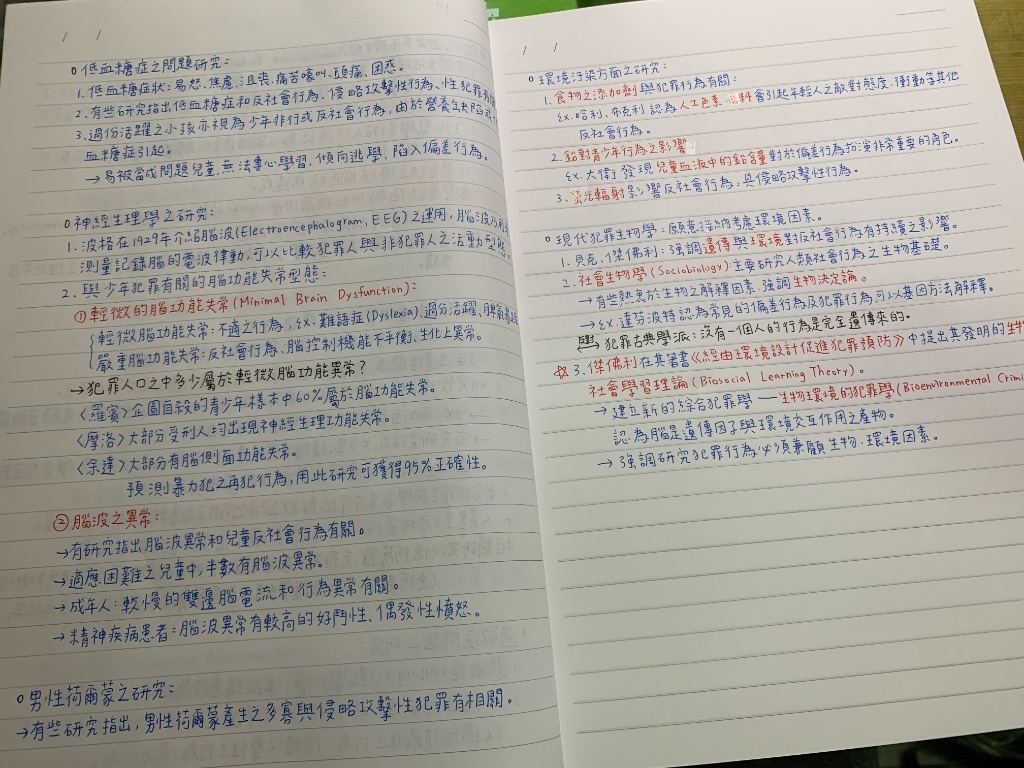 ○低血糖症之問題研究：
1. 低血糖症狀：易怒、焦慮、沮喪、痛苦嚎叫、頭痛、困惑。
2. 有些研究指出低血糖症和反社會行為、侵略攻擊性行為、性犯罪有關
3. 過份活躍之小孩亦視為少年非行或反社會行為，由於營養缺陷
血糖症引起。
→易被當成問題兒童，無法專心學習，傾向逃學，陷入偏差行為。
○神經生理學之研究：
1. 波格在1929年介紹腦波(Electroencephologram, EEG)之運用，腦波
測量記錄腦的電波律動，可以比較犯罪人與非犯罪人之活動型態。
2. 與少年犯罪有關的腦功能失常型態：
①輕微的腦功能失常(Minimal Brain Dysfunction)：
輕微腦功能失常：不適之行為，ex. 難語症(Dyslexia)、過分活躍、脾氣
嚴重腦功能失常：反社會行為、腦控制機能不平衡、生化上異常。
→犯罪人口之中多少屬於輕微腦功能異常？
〈羅賓〉企圖自殺的青少年樣本中60%屬於腦功能失常。
〈摩洛〉大部分受刑人均出現神經生理功能失常。
〈余達〉大部分有腦側面功能失常。
預測暴力犯之再犯行為，用此研究可獲得95%正確性。
②腦波之異常：
→有研究指出腦波異常和兒童反社會行為有關。
→適應困難之兒童中，半數有腦波異常。
→成年人：較慢的雙邊腦電流和行為異常有關。
→精神疾病患者：腦波異常有較高的好鬥性、偶發性憤怒。
○男性荷爾蒙之研究：
→有些研究指出，男性荷爾蒙產生之多寡與侵略攻擊性犯罪有相關。
○環境汙染方面之研究：
1. 食物之添加劑與犯罪行為有關：
ex. 哈利、布克利認為人工色素、料會引起年輕人之敵對態度、衝動等其他
反社會行為。
2. 鉛對青少年行為之影響：
ex. 大衛發現兒童血液中的鉛含量對於偏差行為扮演非常重要的角色。
3. 螢光輻射影響反社會行為：具侵略攻擊性行為。
○現代犯罪生物學：願意接納考慮環境因素。
1. 貝克、傑佛利：強調遺傳與環境對反社會行為有持續之影響。
2. 社會生物學(Sociobiology)主要研究人類社會行為之生物基礎。
→有些熱衷於生物之解釋因素，強調生物決定論。
→ex. 達芬波特認為常見的偏差行為及犯罪行為可以基因方法解釋。
與犯罪古典學派：沒有一個人的行為是完全遺傳來的。
☆3. 傑佛利在其著書《經由環境設計促進犯罪預防》中提出其發明的生物
社會學習理論(Biosocial Learning Theory)。
→建立新的綜合犯罪學——生物環境的犯罪學(Bioenvironmental Crimi
認為腦是遺傳因子與環境交互作用之產物。
→強調研究犯罪行為必須兼顧生物、環境因素。